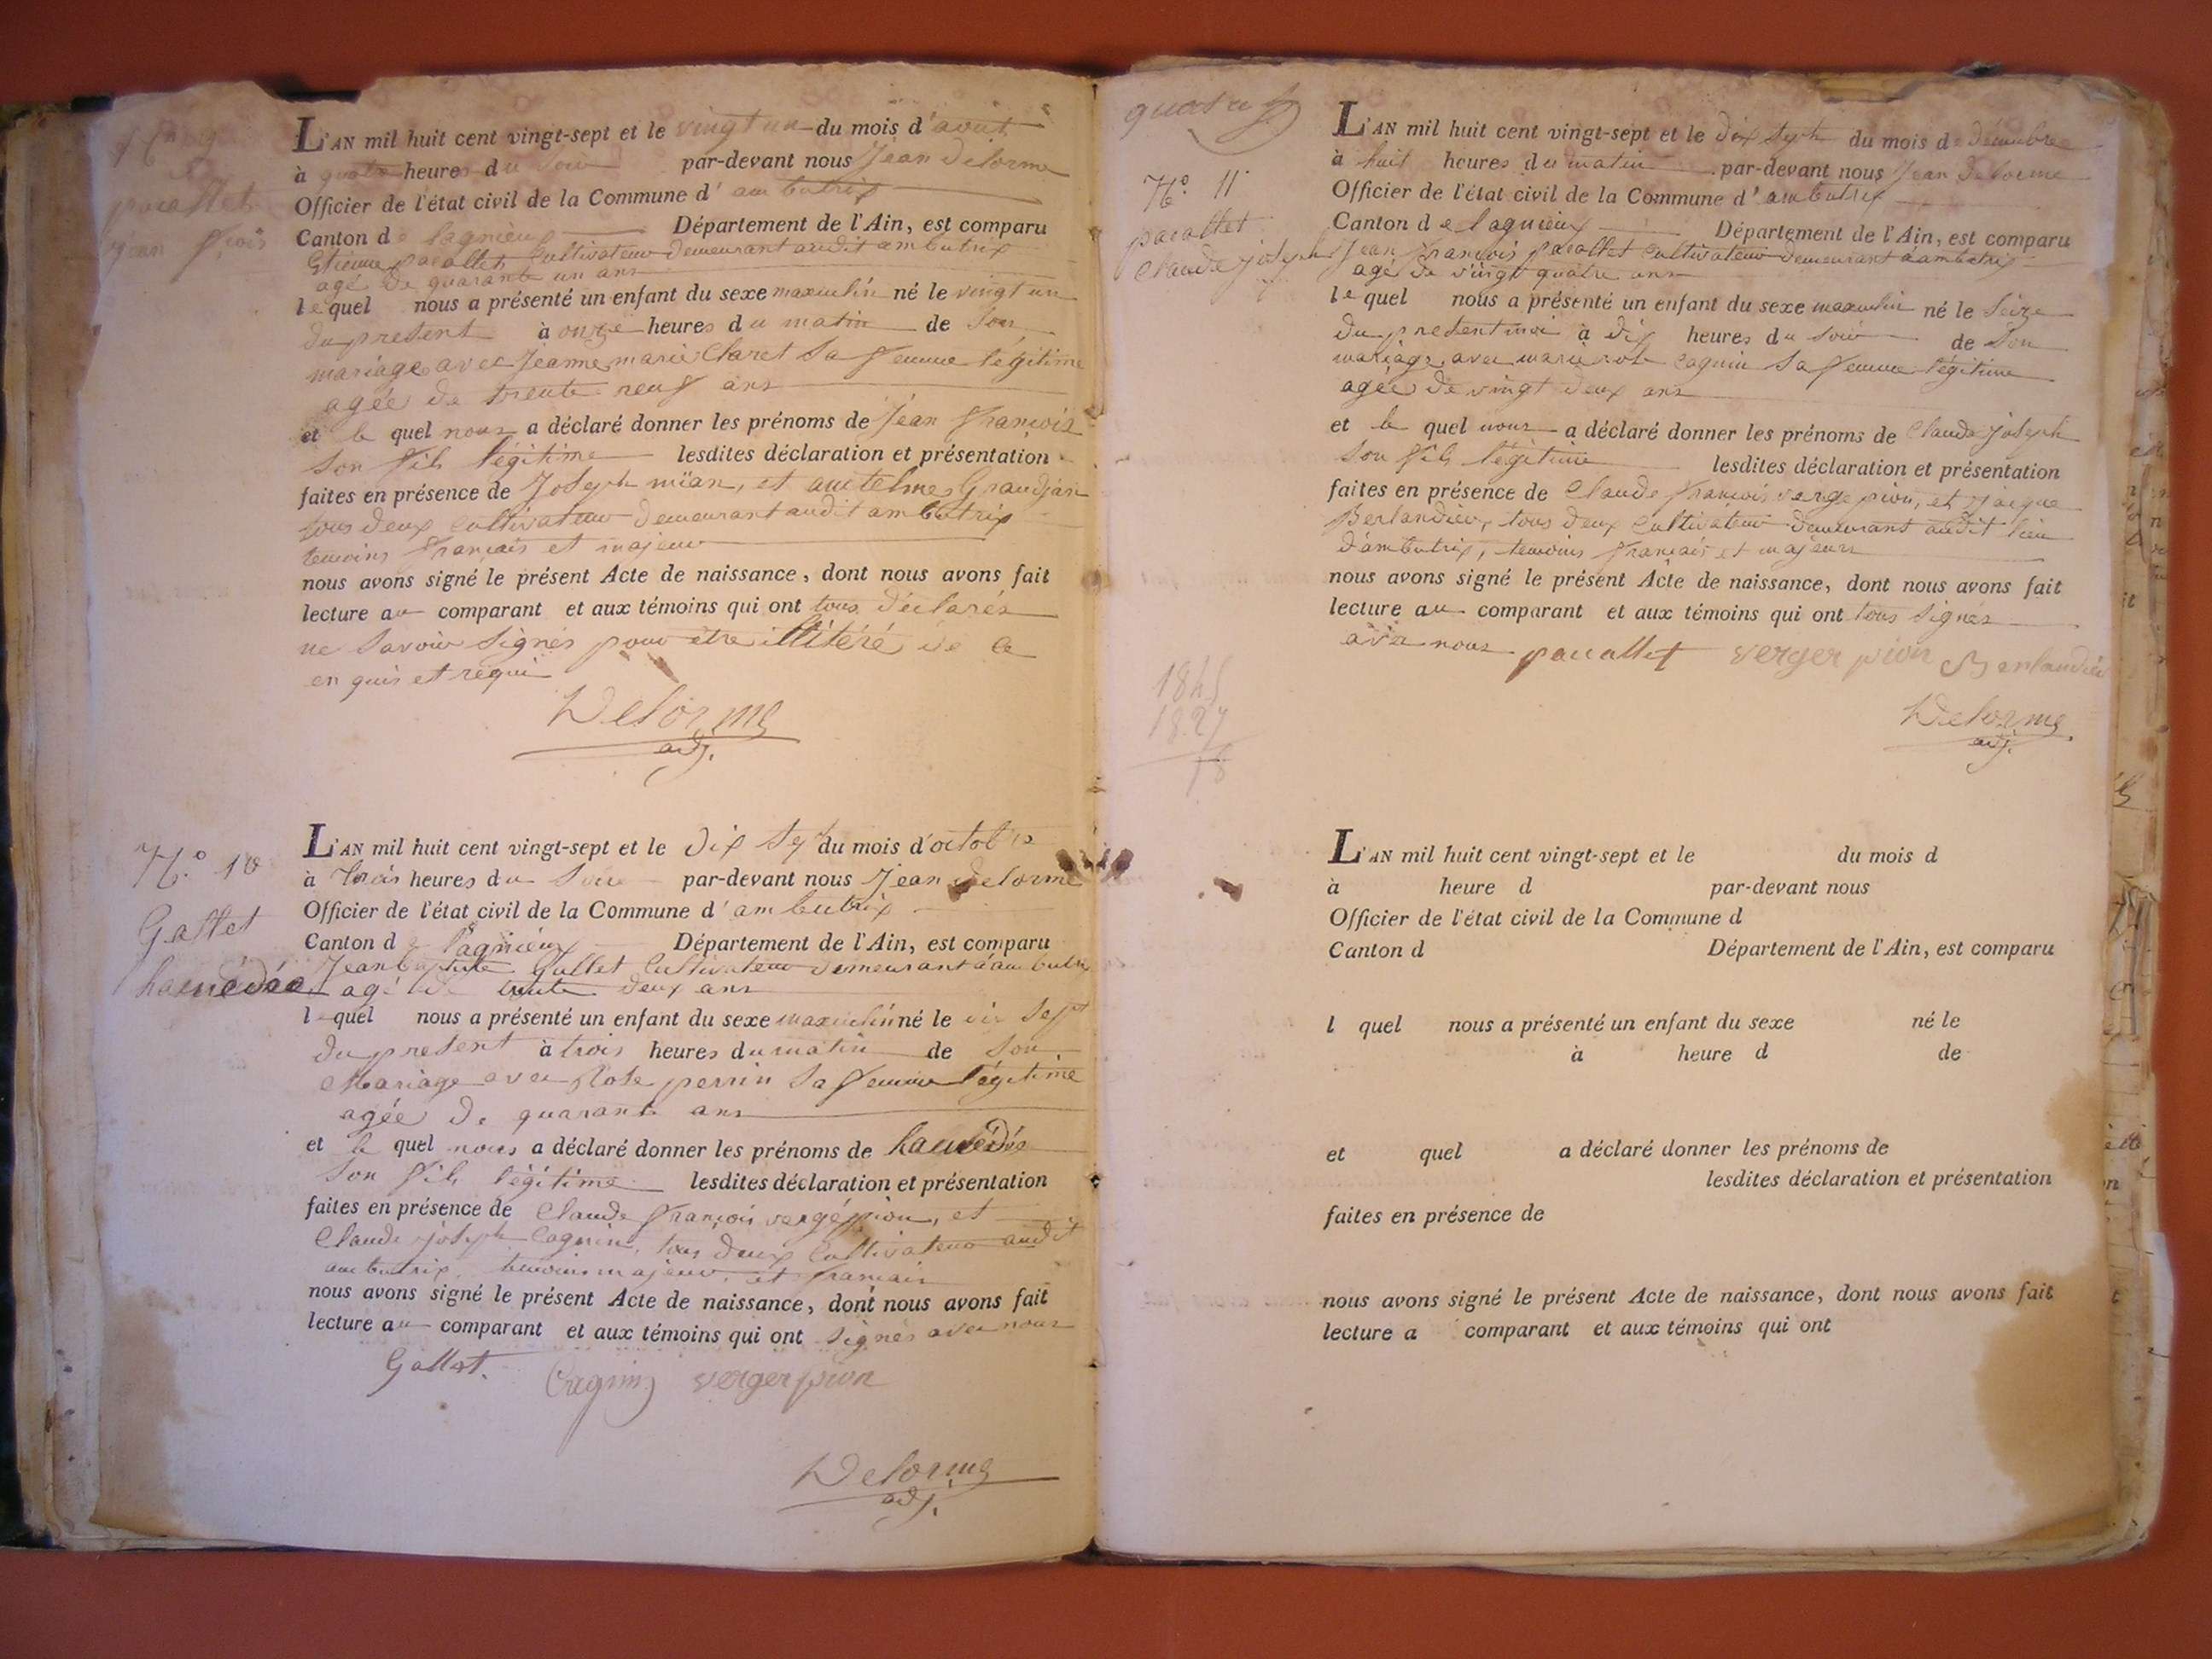 pacallet
jean f.çois
L'AN mil huit cent vingt-sept et le vingt un du mois d'août
à quatre heures du soir par-devant nous Jean Delorme
Officier de l'état civil de la Commune d'ambutrix
Canton de lagnieux Département de l'Ain, est comparu
Etienne pacallet, Cultivateur demeurant audit ambutrix
agé de quarante un ans
lequel nous a présenté un enfant du sexe masculin né le vingt un
du present à onze heures du matin de son
mariage avec Jeanne marie Claret sa femme légitime
agée de trente neuf ans
et le quel nous a déclaré donner les prénoms de Jean françois
son fils légitime lesdites déclaration et présentation
faites en présence de Joseph mian, et antelme Grandjean
tous deux cultivateur demeurant audit ambutrix
temoins français et majeur
nous avons signé le présent Acte de naissance, dont nous avons fait
lecture au comparant et aux témoins qui ont tous déclarés
ne savoir signés pour être illitéré de ce
en quis et requi
Delorme
adj.
N.° 10
Gallet
hamédée
L'AN mil huit cent vingt-sept et le dix sept du mois d'octobre
à trois heures du soir par-devant nous Jean Delorme
Officier de l'état civil de la Commune d'ambutrix
Canton de lagnieux Département de l'Ain, est comparu
Jean baptiste Gallet Cultivateur demeurant à ambutrix
agé de trente deux ans
lequel nous a présenté un enfant du sexe masculin né le dix sept
du present à trois heures du matin de son
Mariage avec Rose perrin sa femme légitime
agée de quarante ans
et le quel nous a déclaré donner les prénoms de hamédée
son fils légitime lesdites déclaration et présentation
faites en présence de Claude françois vergépion, et
Claude joseph Cagnin, tous deux Cultivateur audit
ambutrix, temoins majeur, et français
nous avons signé le présent Acte de naissance, dont nous avons fait
lecture au comparant et aux témoins qui ont signés avec nous
Gallet. Cagnin vergerpion
Delorme
adj.
N.° 11
pacallet
Claude joseph
1845
1827
18
L'AN mil huit cent vingt-sept et le dix sept du mois de décembre
à huit heures du matin par-devant nous Jean Delorme
Officier de l'état civil de la Commune d'ambutrix
Canton de lagnieux Département de l'Ain, est comparu
Jean François pacallet Cultivateur demeurant à ambutrix
agé de vingt quatre ans
lequel nous a présenté un enfant du sexe masculin né le seize
du present moi à dix heures du soir de son
mariage avec marie cagnin sa femme légitime
agée de vingt deux ans
et le quel nous a déclaré donner les prénoms de Claude joseph
son fils légitime lesdites déclaration et présentation
faites en présence de Claude françois vergepion, et jacque
Berlandier, tous deux Cultivateur demeurant audit lieu
d'ambutrix, temoins français et majeurs
nous avons signé le présent Acte de naissance, dont nous avons fait
lecture au comparant et aux témoins qui ont tous signés
avec nous pacallet verger pion Berlandier
Delorme
adj.
L'AN mil huit cent vingt-sept et le du mois d
à heure d par-devant nous
Officier de l'état civil de la Commune d
Canton d Département de l'Ain, est comparu
l quel nous a présenté un enfant du sexe né le
à heure d de
et quel a déclaré donner les prénoms de
lesdites déclaration et présentation
faites en présence de
nous avons signé le présent Acte de naissance, dont nous avons fait
lecture a comparant et aux témoins qui ont